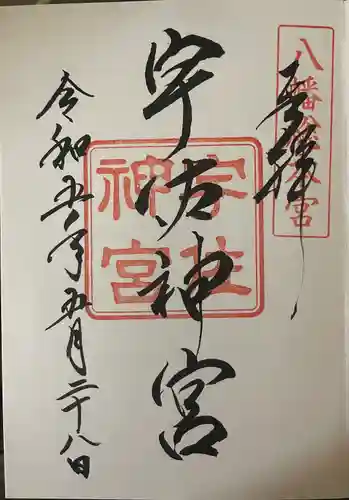 奉拝
八幡総本宮
宇佐神宮
宇佐神宮
令和五年五月二十八日